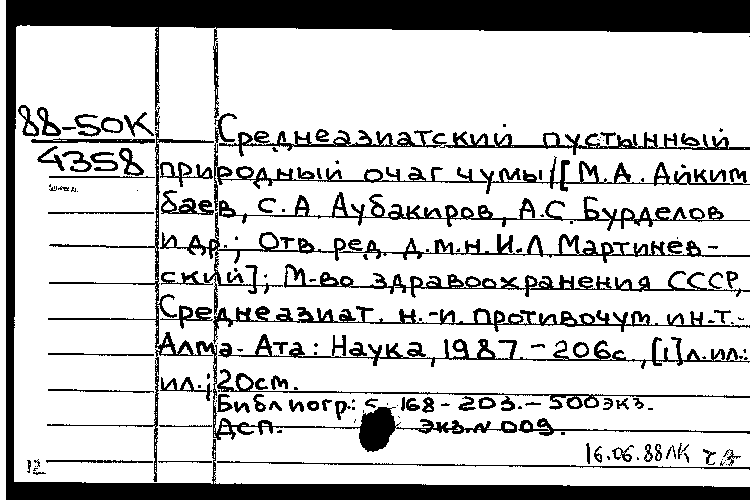 88-50К
4358
Среднеазиатский пустынный
природный очаг чумы/[М.А. Айким
баев, С.А. Аубакиров, А.С. Бурделов
и др.; Отв. ред. д.м.н. И.Л. Мартинев-
ский]; М-во здравоохранения СССР,
Среднеазиат. н.-и. противочум. ин-т.-
Алма-Ата: Наука, 1987.-206с., [1]л.ил.:
ил.; 20cm.
Библиогр.: с. 168-203.-500экз.
ДСП. экз.№ 009.
16.06.88ЛК
12